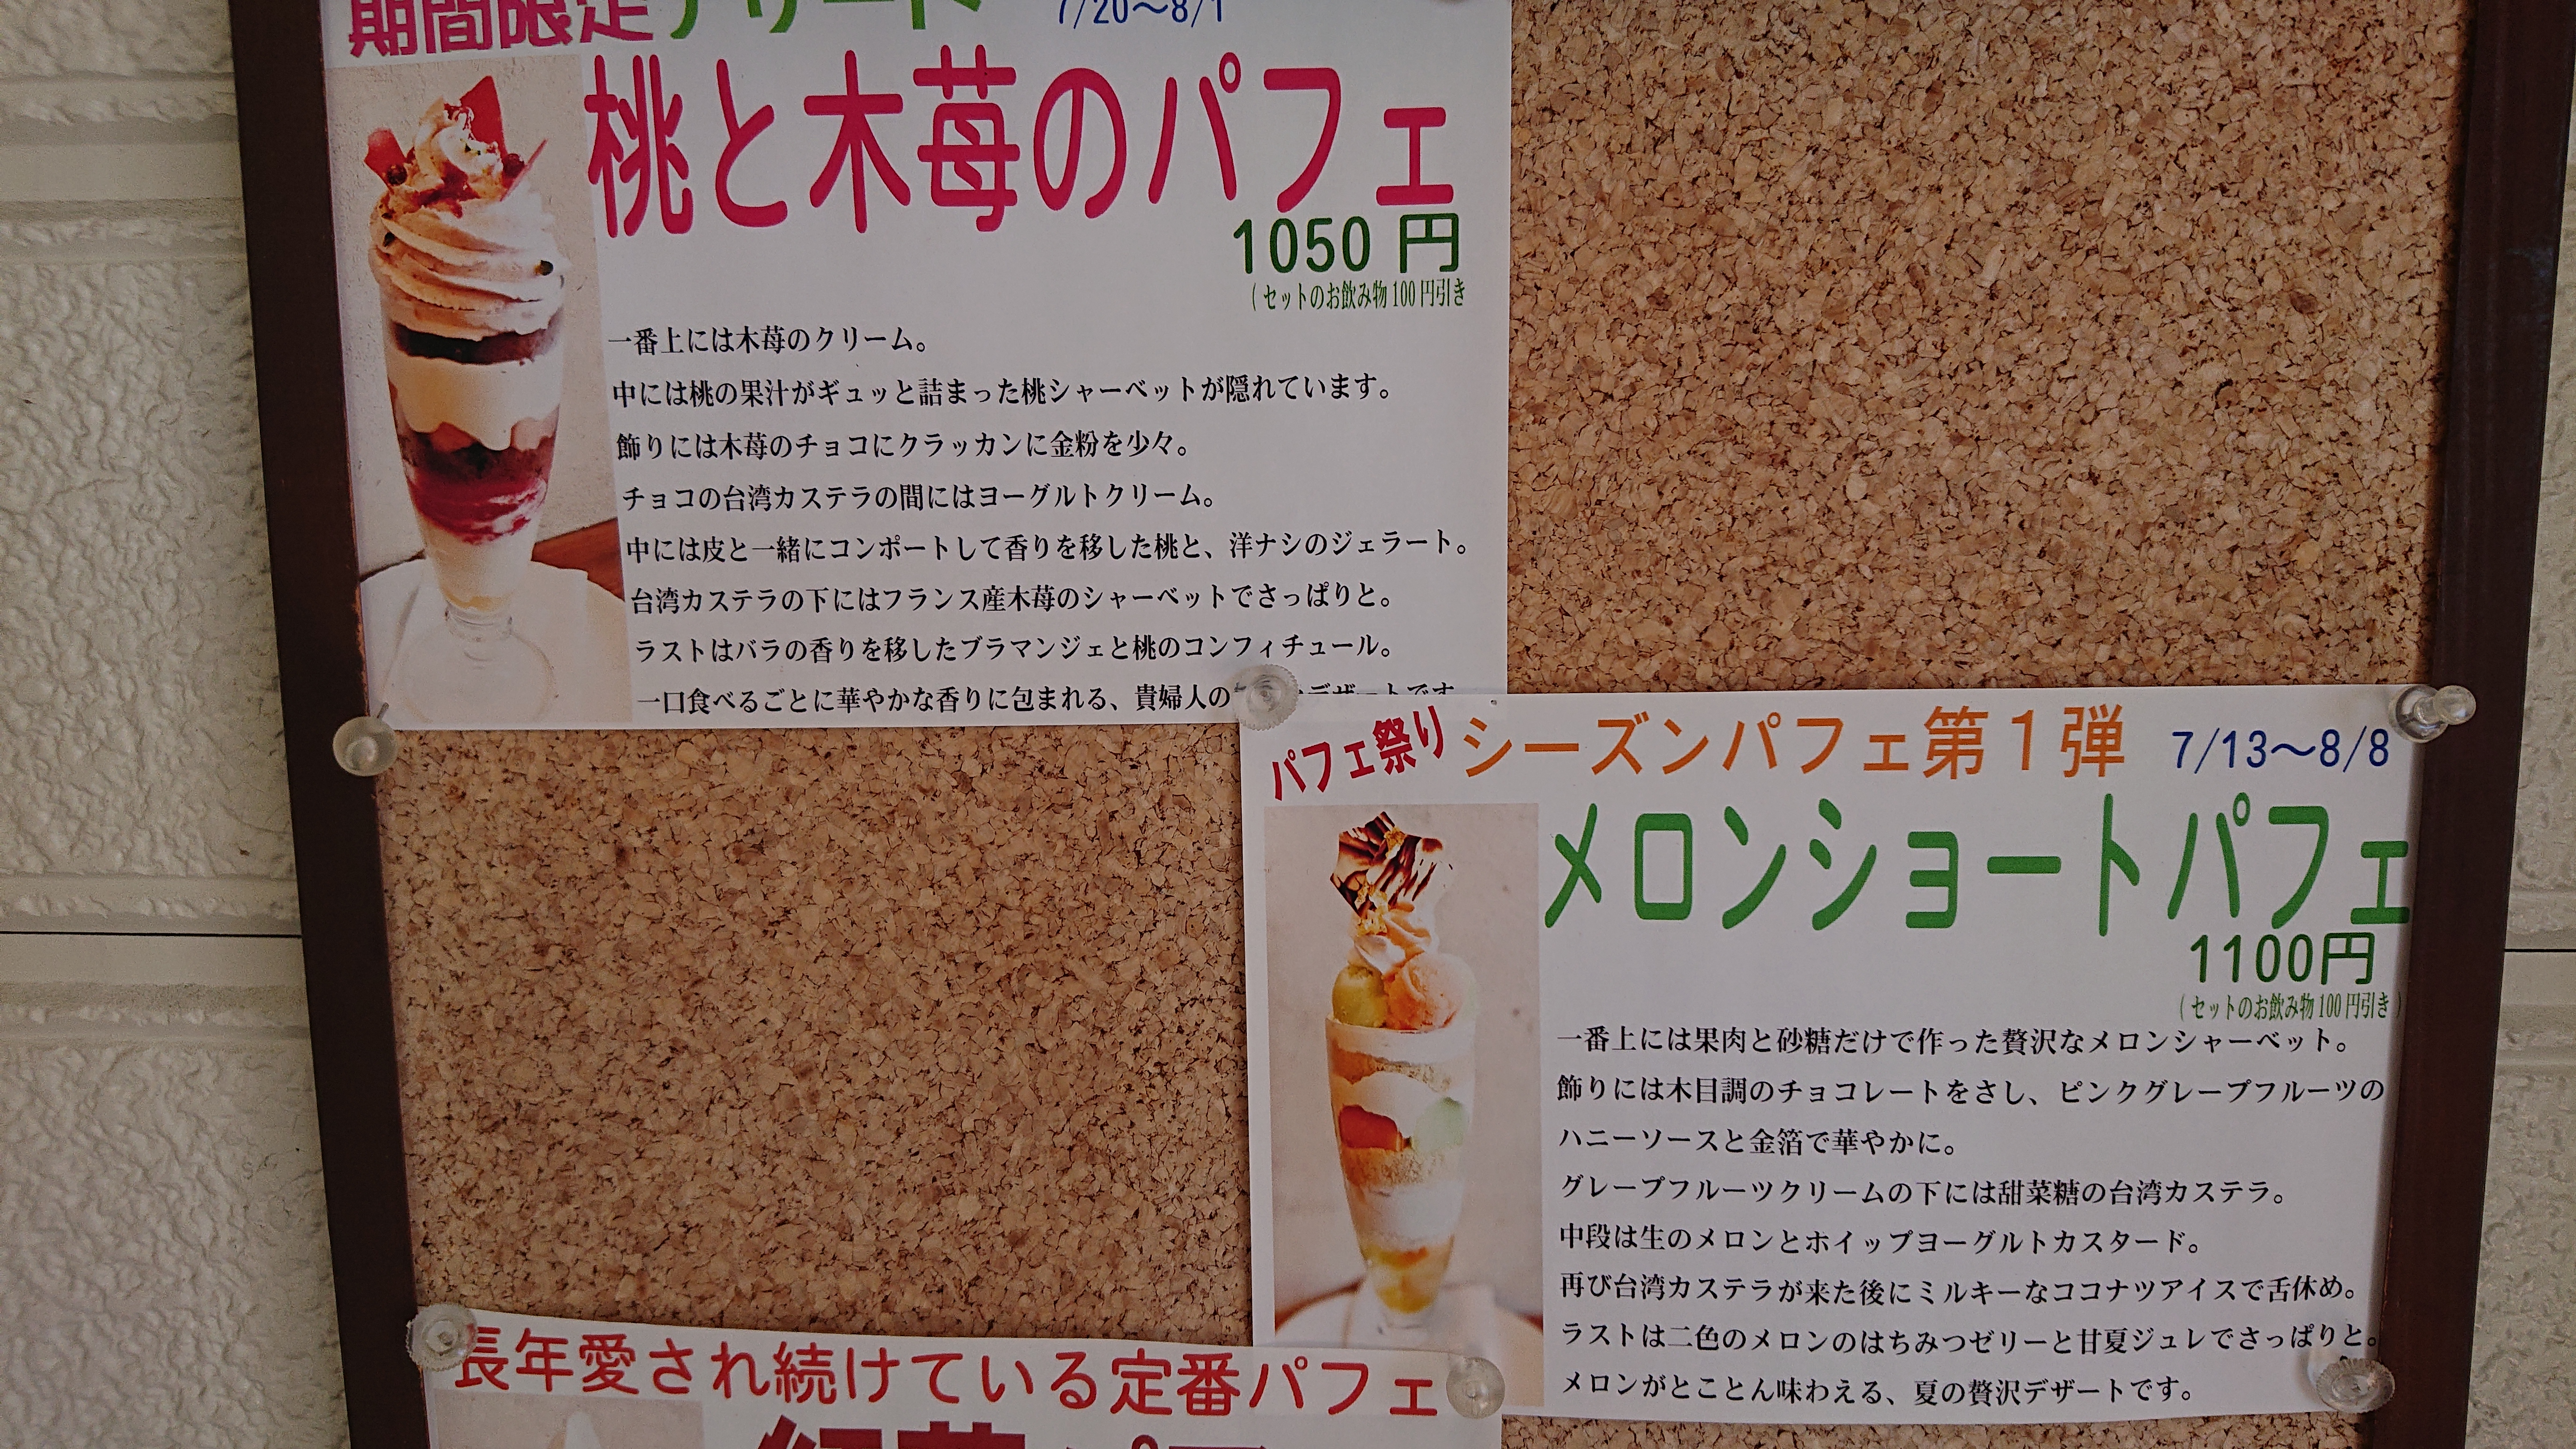 期間限定デザート 7/20～8/1
桃と木苺のパフェ
1050円
(セットのお飲み物100円引き
一番上には木苺のクリーム。
中には桃の果汁がギュッと詰まった桃シャーベットが隠れています。
飾りには木苺のチョコにクラッカンに金粉を少々。
チョコの台湾カステラの間にはヨーグルトクリーム。
中には皮と一緒にコンポートして香りを移した桃と、洋ナシのジェラート。
台湾カステラの下にはフランス産木苺のシャーベットでさっぱりと。
ラストはバラの香りを移したブラマンジェと桃のコンフィチュール。
一口食べるごとに華やかな香りに包まれる、貴婦人の デザートです
パフェ祭り シーズンパフェ第1弾 7/13～8/8
メロンショートパフェ
1100円
(セットのお飲み物100円引き)
一番上には果肉と砂糖だけで作った贅沢なメロンシャーベット。
飾りには木目調のチョコレートをさし、ピンクグレープフルーツの
ハニーソースと金箔で華やかに。
グレープフルーツクリームの下には甜菜糖の台湾カステラ。
中段は生のメロンとホイップヨーグルトカスタード。
再び台湾カステラが来た後にミルキーなココナツアイスで舌休め。
ラストは二色のメロンのはちみつゼリーと甘夏ジュレでさっぱりと。
メロンがとことん味わえる、夏の贅沢デザートです。
長年愛され続けている定番パフェ